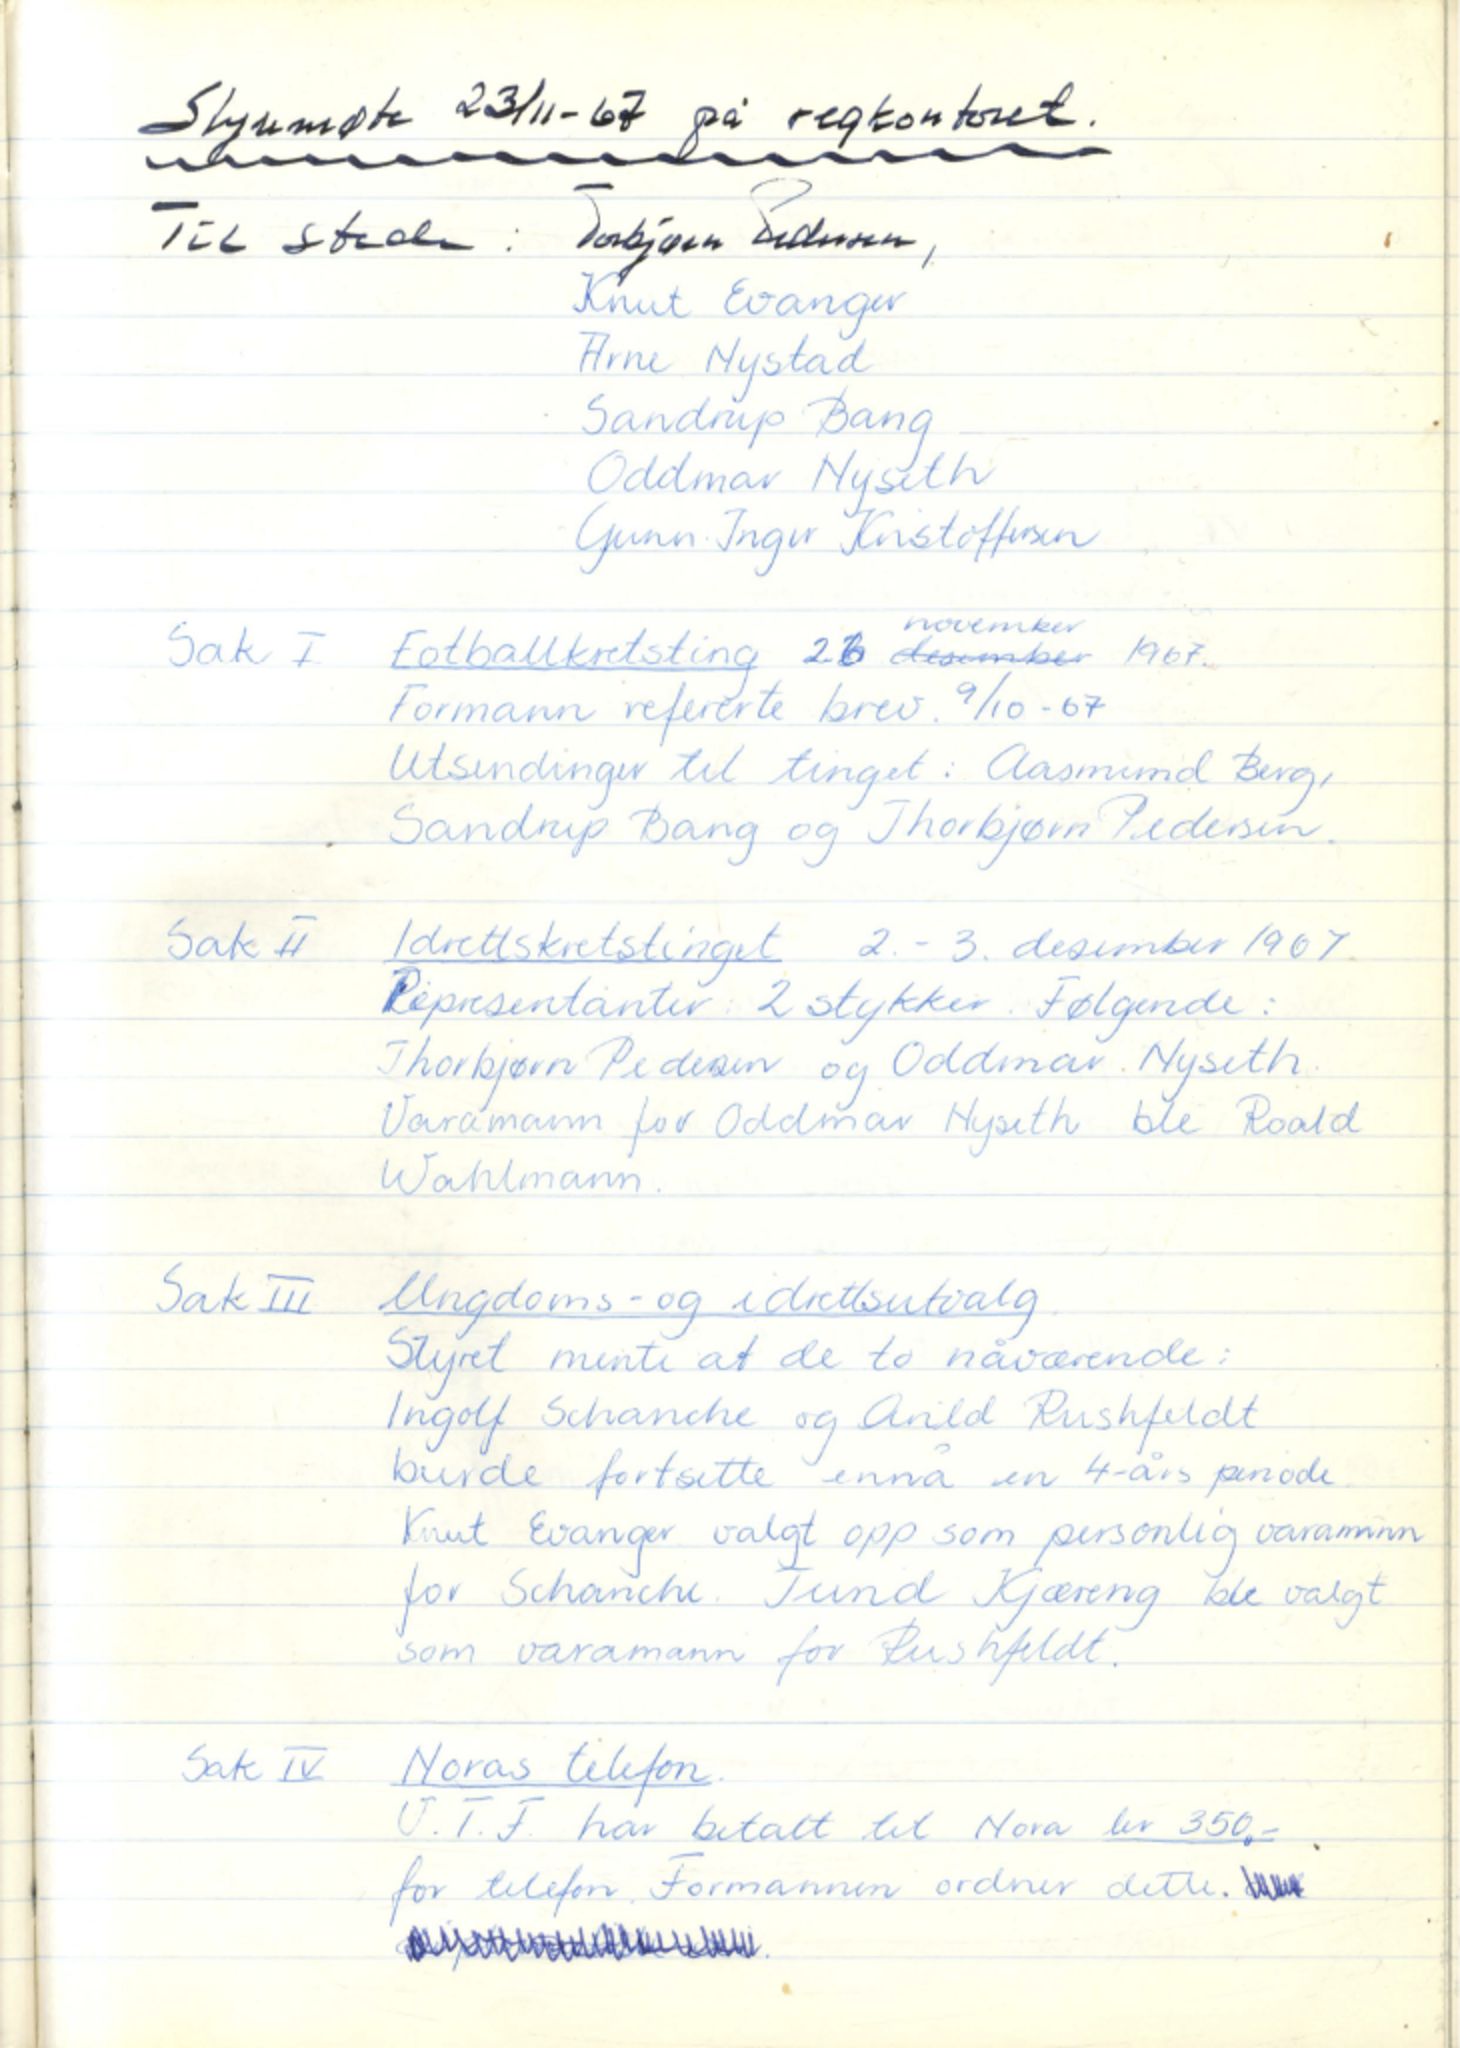 Styremøte 23/11-67 på regkontoret.
Til stede: Torbjørn Pedersen,
Knut Evanger
Arne Nystad
Sandrup Bang
Oddmar Nyseth
Gunn-Inger Kristoffersen
Sak I Fotballkretsting 26 november desember 1967.
Formann refererte brev. 9/10-67
Utsendinger til tinget: Aasmund Berg,
Sandrup Bang og Thorbjørn Pedersen.
Sak II Idrettskretstinget 2.-3. desember 1967
Representanter: 2 stykker. Følgende:
Thorbjørn Pedersen og Oddmar Nyseth.
Varamann for Oddmar Nyseth ble Roald
Wahlmann.
Sak III Ungdoms- og idrettsutvalg
Styret mente at de to nåværende:
Ingolf Schanche og Arild Rushfeldt
burde fortsette ennå en 4-års periode.
Knut Evanger valgt opp som personlig varamann
for Schanche. Kjæreng ble valgt
som varamann for Rushfeldt.
Sak IV Noras telefon.
V.T.F. har betalt til Nora kr 350,-
for telefon. Formannen ordner dette.